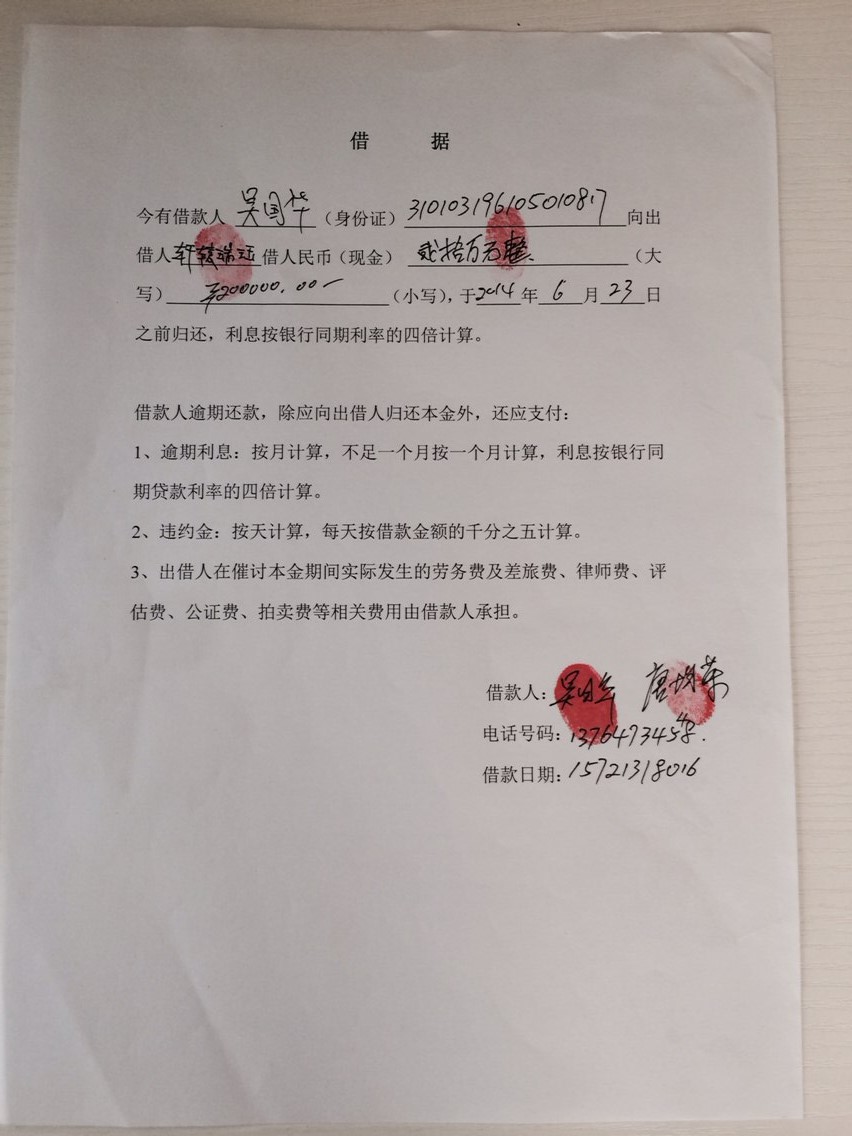 借 据
今有借款人 吴国华 (身份证) 310103196105010817 向出
借人 轩辕瑞 借人民币(现金) 贰拾万元整 (大
写) ¥200000.00 (小写),于2014年 6 月 23 日
之前归还,利息按银行同期利率的四倍计算。
借款人逾期还款,除应向出借人归还本金外,还应支付:
1、逾期利息:按月计算,不足一个月按一个月计算,利息按银行同
期贷款利率的四倍计算。
2、违约金:按天计算,每天按借款金额的千分之五计算。
3、出借人在催讨本金期间实际发生的劳务费及差旅费、律师费、评
估费、公证费、拍卖费等相关费用由借款人承担。
借款人:吴国华 唐
电话号码:
借款日期:15721318016